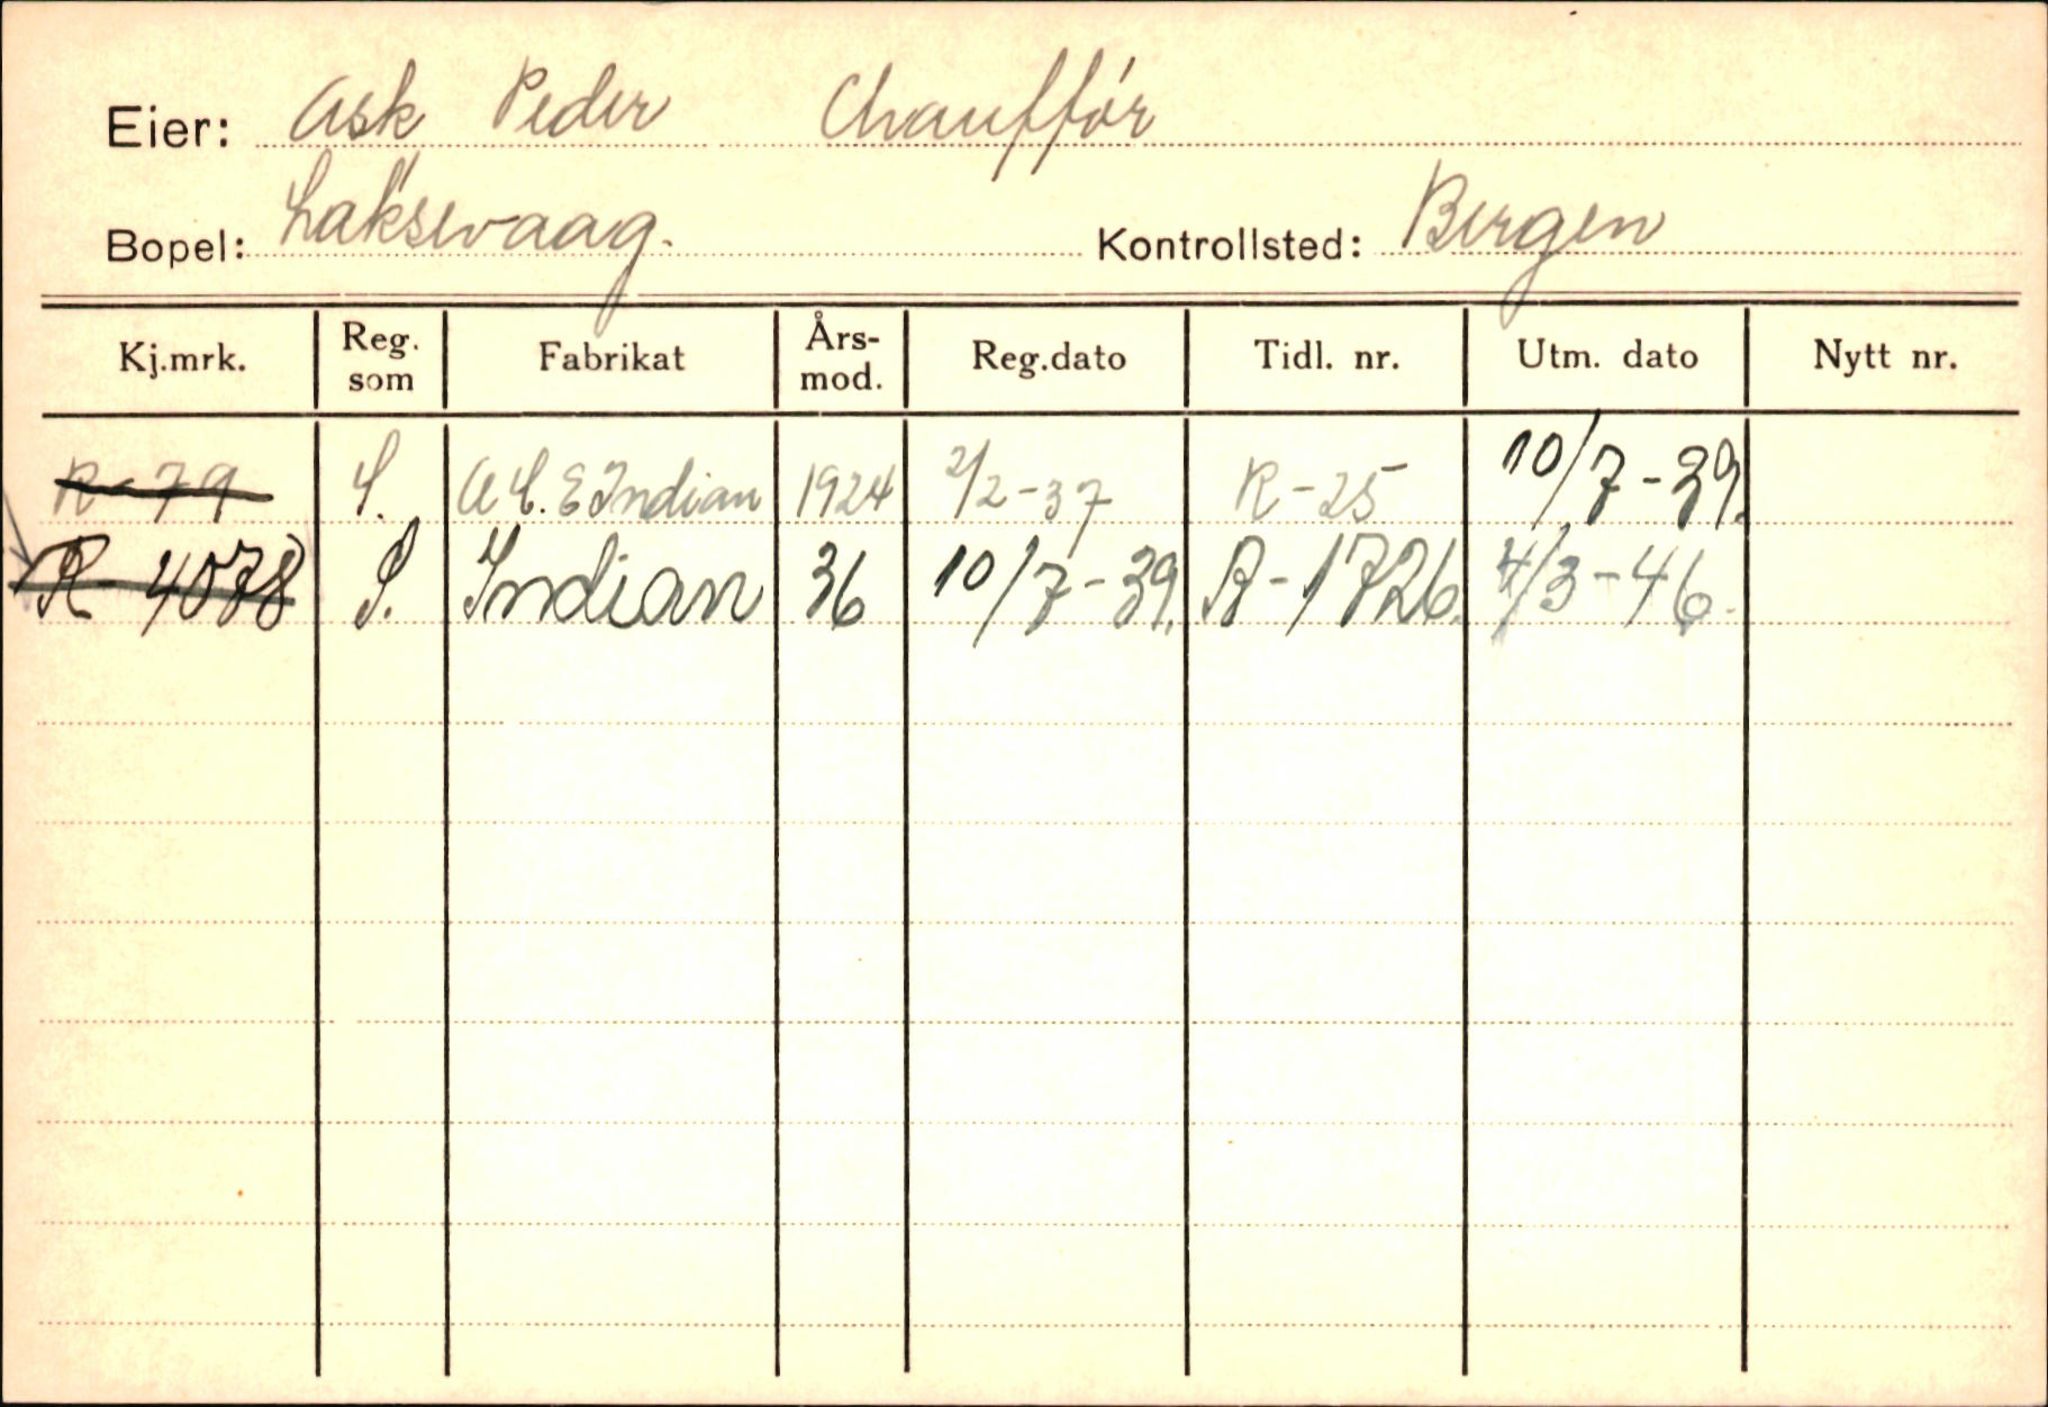 Eier: Ask Peder Chauffór
Bopel: Laksevaag. Kontrollsted: Bergen
Kj.mrk. Reg. som Fabrikat Års-mod. Reg.dato Tidl. nr. Utm. dato Nytt nr.
R-79 S. Indian 1924 2/2-37 R-25 10/7-39.
R-4078 S. Indian 36 10/7-39. R-1726. 4/3-46.